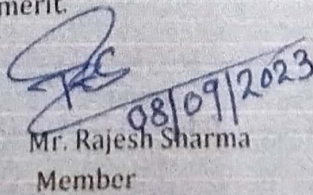 merit.
08/09/2023
Mr. Rajesh Sharma
Member